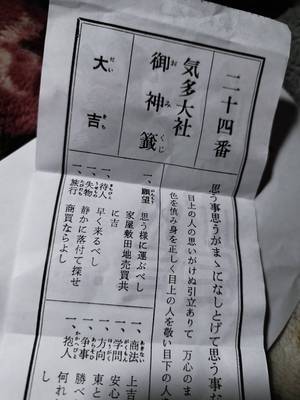 二十四番
気多大社
御神籤
おみくじ
大吉
だいきち
思う事思うがまゝになしとげて思う事
目上の人の思いがけぬ引立ありて 万心のま
色を慎み身を正しく目上の人を敬い目下の人を
一、願望 思う様に運ぶべし
家屋敷田地売買共
に吉
一、待人 早く来るべし
一、失物 静かに落付て探せ
一、旅行 商買ならよし
一、商法 上吉
一、学問 安心
一、方向 東と
一、争事 勝べ
一、抱人 何れ
し